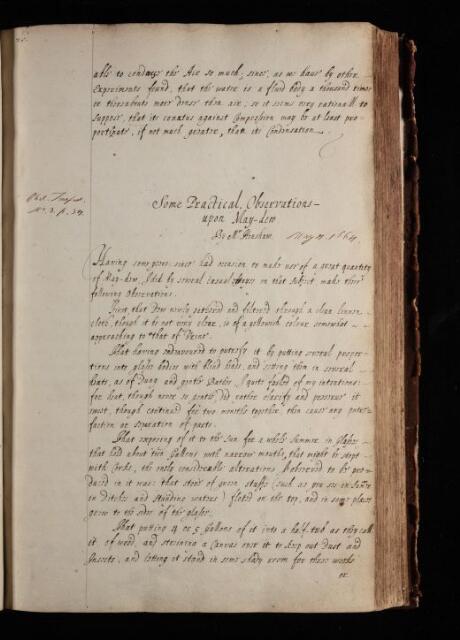 able to condense the Air so much; since, as we haue by other
Experiments found, that the water is a fluid body a thousand times
or thereabouts more dense then air; so it seems very rationall to
suppose, that its conatus against Compression may be at least pro-
portionate, if not much greater, than its Condensation.
Phil. Trans.
No. 3. p. 34
Some Practical Observations
upon May-dew
By Mr Henshaw. May 4. 1664
Having some years since had occasion to make use of a great quantity
of May-dew, I did by several casual Essays on that Subject make these
following Observations.
First that Dew newly gathered and filtered through a clean linnen
cloth, though it be not very clear, is of a yellowish colour somewhat
approaching to that of Urine.
That having endeavoured to putrefy it by putting several propor-
tions into glass bodies with blind heads, and setting them in several
heats, as of Dung and gentle Bathes, I quite failed of my intentions:
for heat, though never so gentle, did rather clarify and preserve it
sweet, though continued for two months together, than cause any putre-
faction or separation of parts.
That exposing of it to the Sun for a whole Summer in Glasses
that held about two Gallons with narrow mouths, that might be stopt
with Corks, the only considerable alterations I observed to be pro-
duced in it was: that store of green stuffe (such as you see in Summer
in ditches and standing waters) floted on the top, and in some places
grew to the sides of the glasses.
That putting 4 or 5 Gallons of it into a half-tub as they call
it of wood, and straining a Canvas over it to keep out Dust and
Insects, and letting it stand in some shady room for three weeks
or